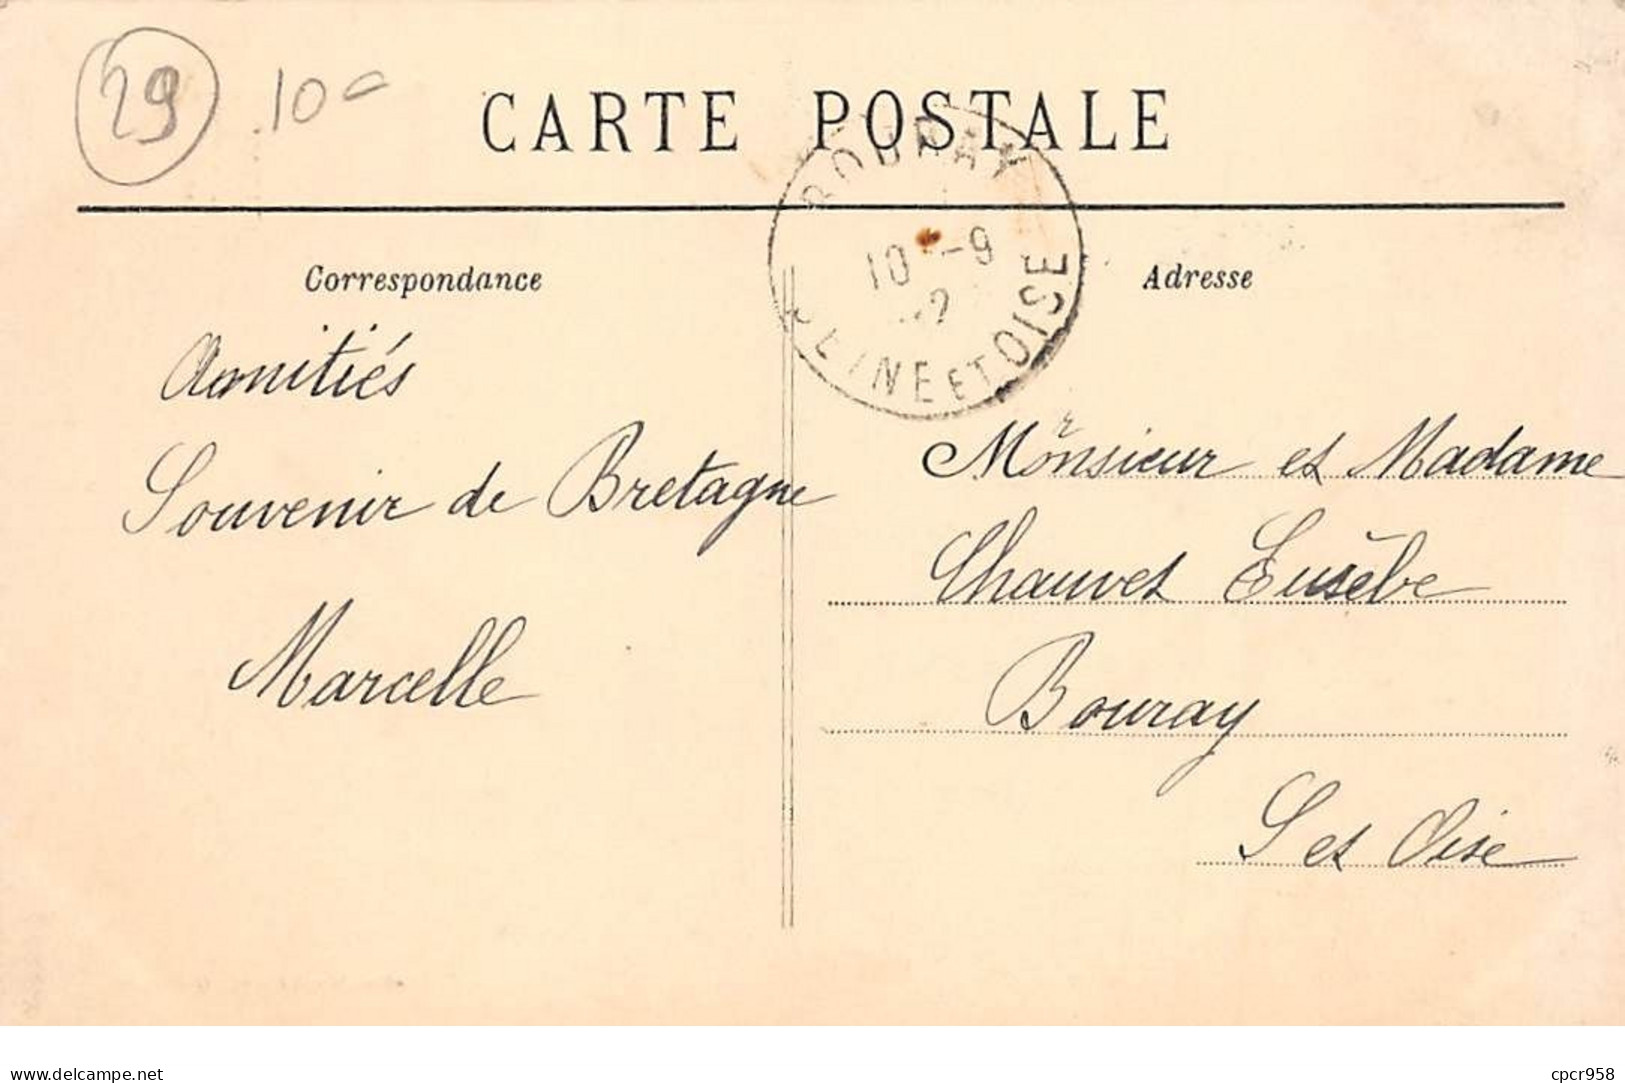 29 10
CARTE POSTALE
BOURAY
10 - 9
SEINE ET OISE
Correspondance
Amitiés
Souvenir de Bretagne
Marcelle
Adresse
Monsieur et Madame
Chauvet Eusèbe
Bouray
S et Oise
www.delcampe.net
cpcr958